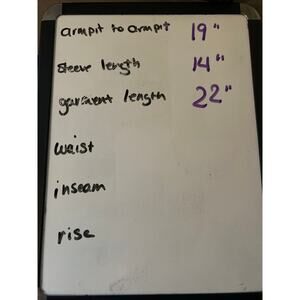 armpit to armpit 19"
sleeve length 14"
garment length 22"
waist
inseam
rise